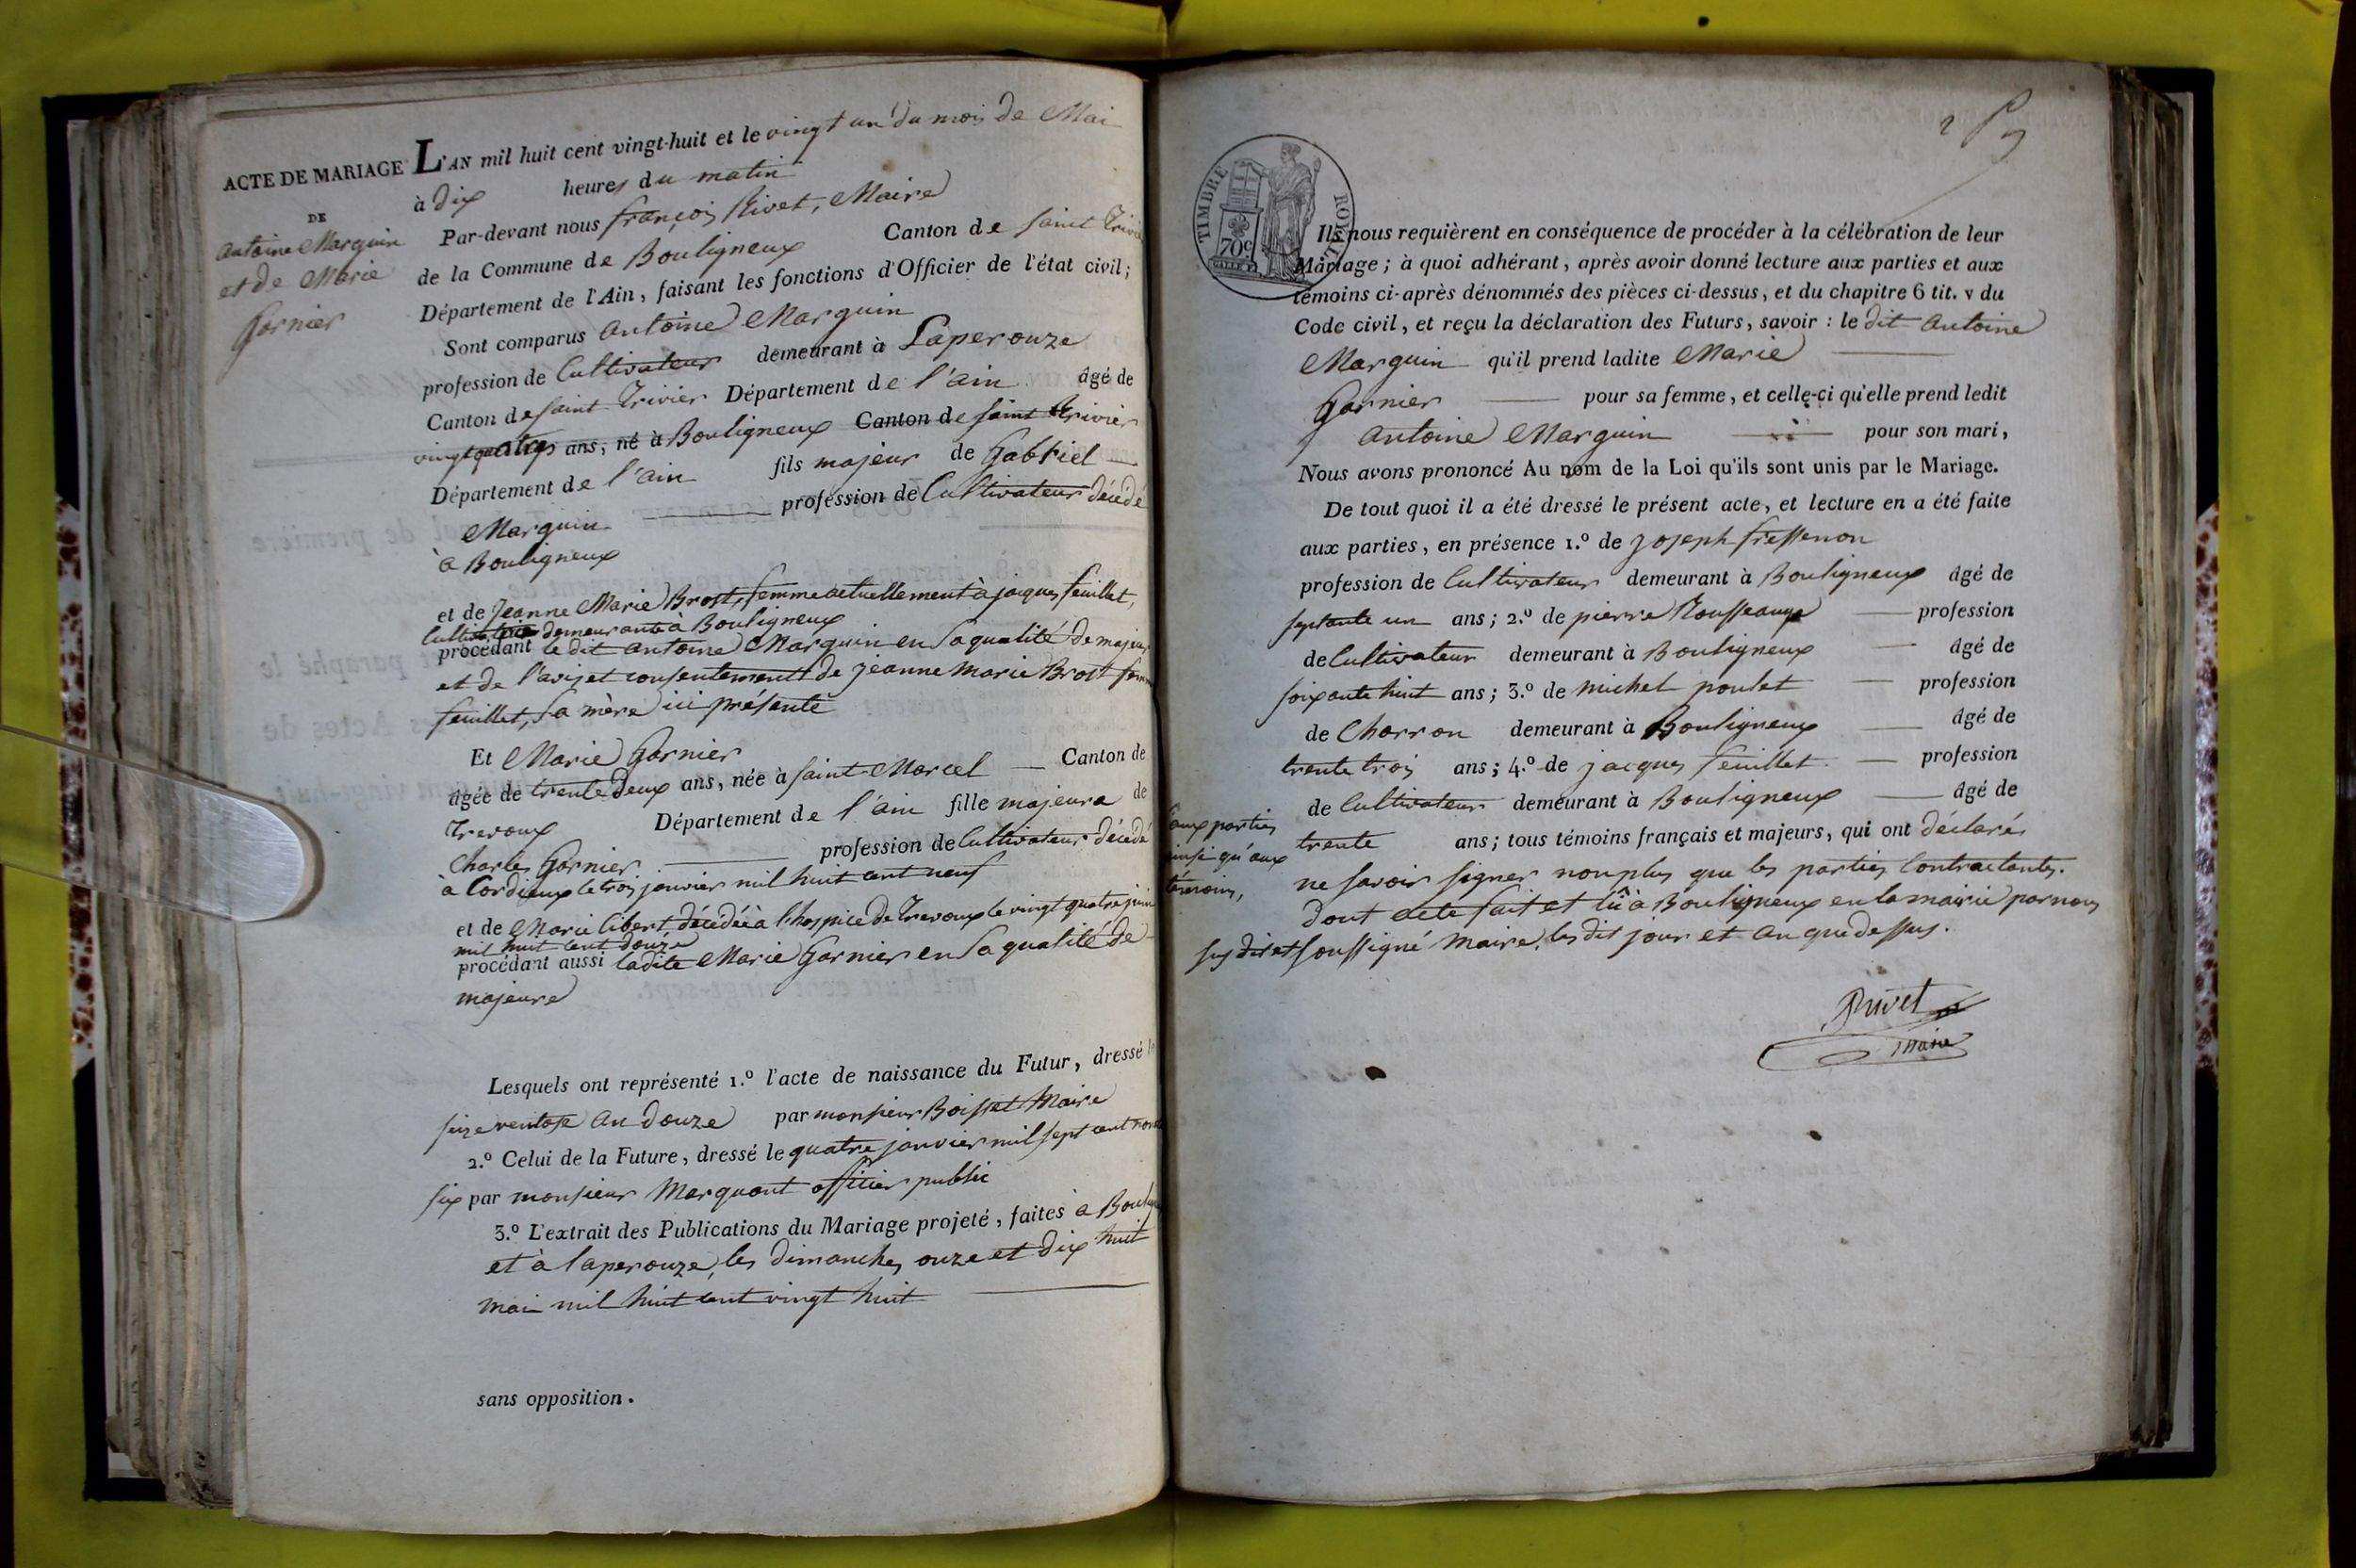 ACTE DE MARIAGE
DE
Antoine Marguin
et de Marie
Garnier
L'AN mil huit cent vingt-huit et le vingt un du mois de Mai
à dix heures du matin
Par-devant nous françois Rivet, Maire
de la Commune de Bouligneux Canton de saint Trivier
Département de l'Ain, faisant les fonctions d'Officier de l'état civil;
Sont comparus Antoine Marguin
profession de Cultivateur demeurant à Laperouze
Canton de saint Trivier Département de l'ain âgé de
vingt quatre ans, né à Bouligneux Canton de saint Trivier
Département de l'ain fils majeur de Gabriel
Marguin profession de Cultivateur décédé
à Bouligneux
et de Jeanne Marie Brost, femme actuellement à jacques feuillet,
demeurante à Bouligneux
procédant le dit antoine Marguin en sa qualité de majeur
et de l'avis et consentement de jeanne marie Brost femme
feuillet, sa mère ici présente
Et Marie Garnier
âgée de trente deux ans, née à saint-Marcel Canton de
Trevoux Département de l'ain fille majeure de
Charles Garnier profession de Cultivateur décédé
à Cordieux le trois janvier mil huit cent neuf
et de Marie libert, décédée à l'hospice de Trevoux le vingt quatre juin
mil huit cent douze
procédant aussi ladite Marie Garnier en sa qualité de
majeure
Lesquels ont représenté 1.º l'acte de naissance du Futur, dressé le
seize ventose an douze par monsieur Boisset Maire
2.º Celui de la Future, dressé le quatre janvier mil sept cent
six par monsieur Marquant officier public
3.º L'extrait des Publications du Mariage projeté, faites à
et à laperouze, les dimanches onze et dix huit
mai mil huit cent vingt huit
sans opposition.
TIMBRE ROYAL
70c
Ils nous requièrent en conséquence de procéder à la célébration de leur
Mariage; à quoi adhérant, après avoir donné lecture aux parties et aux
témoins ci-après dénommés des pièces ci-dessus, et du chapitre 6 tit. v du
Code civil, et reçu la déclaration des Futurs, savoir : le dit Antoine
Marguin qu'il prend ladite Marie
Garnier pour sa femme, et celle-ci qu'elle prend ledit
Antoine Marguin pour son mari,
Nous avons prononcé Au nom de la Loi qu'ils sont unis par le Mariage.
De tout quoi il a été dressé le présent acte, et lecture en a été faite
aux parties, en présence 1.º de joseph fressenon
profession de Cultivateur demeurant à Bouligneux âgé de
septante un ans; 2.º de pierre Rousseange profession
de Cultivateur demeurant à Bouligneux âgé de
soixante huit ans; 3.º de michel poulet profession
de Charron demeurant à Bouligneux âgé de
trente trois ans; 4.º de jacques feuillet profession
de Cultivateur demeurant à Bouligneux âgé de
trente ans; tous témoins français et majeurs, qui ont déclarés
ne savoir signer non plus que les parties Contractantes.
Dont acte fait et lû à Bouligneux en la mairie par nous
susdit et soussigné maire, les dit jour et an que dessus.
aux parties
ainsi qu'aux
témoins,
Rivet
maire